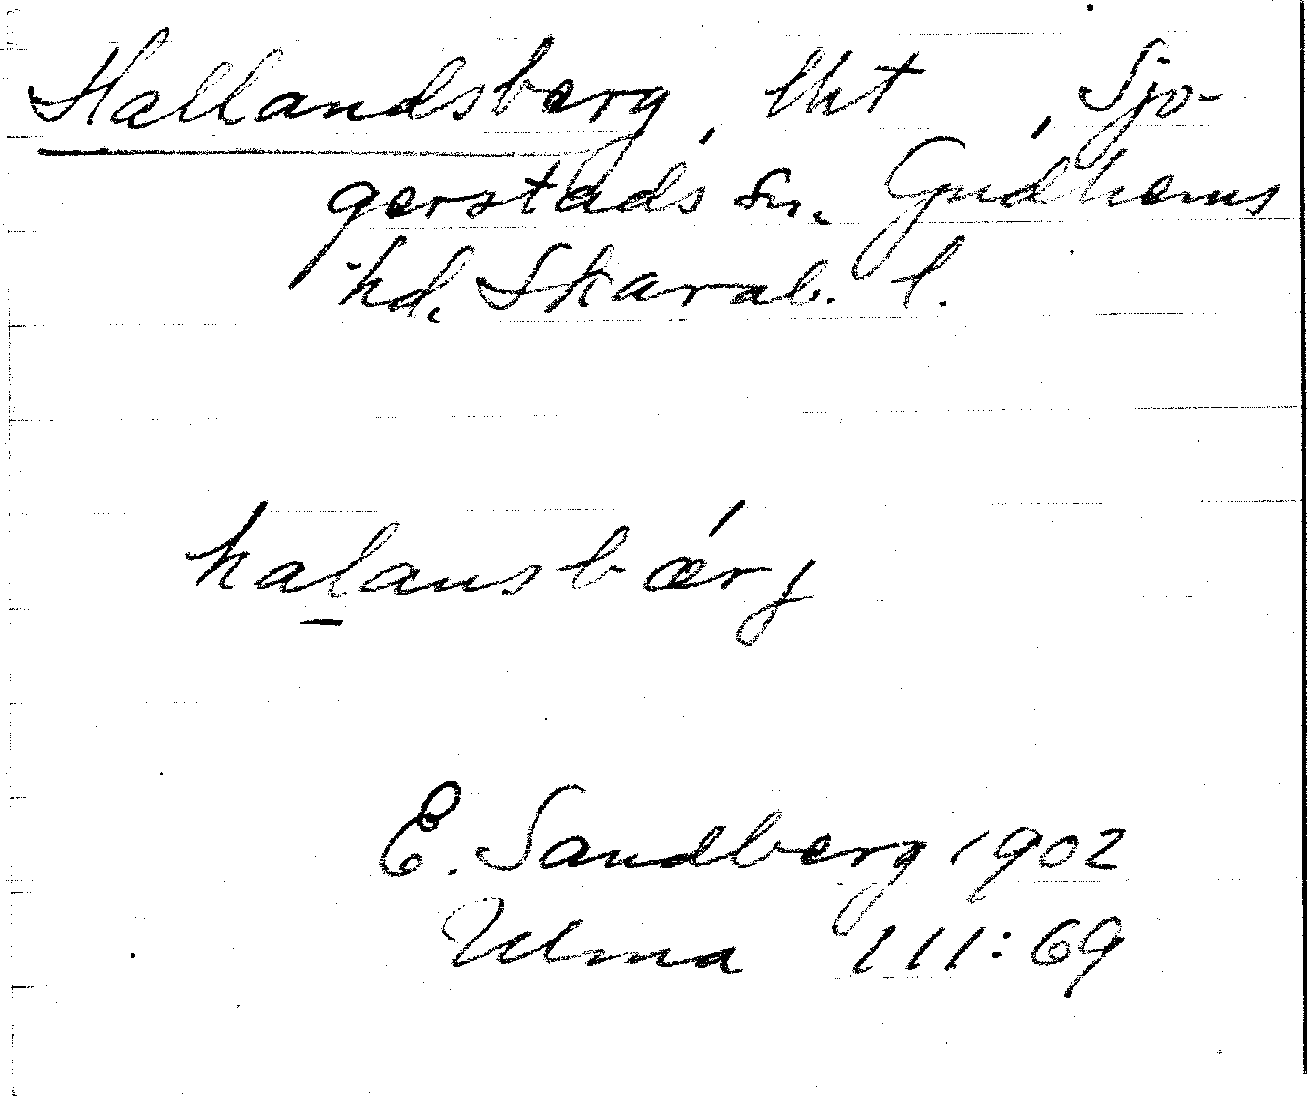 Hallandsberg, lht, Sjo-
gerstads sn. Gudhems
hd. Skarab. l.
halansbǽrj
E. Sandberg 1902
Ulma 111:69